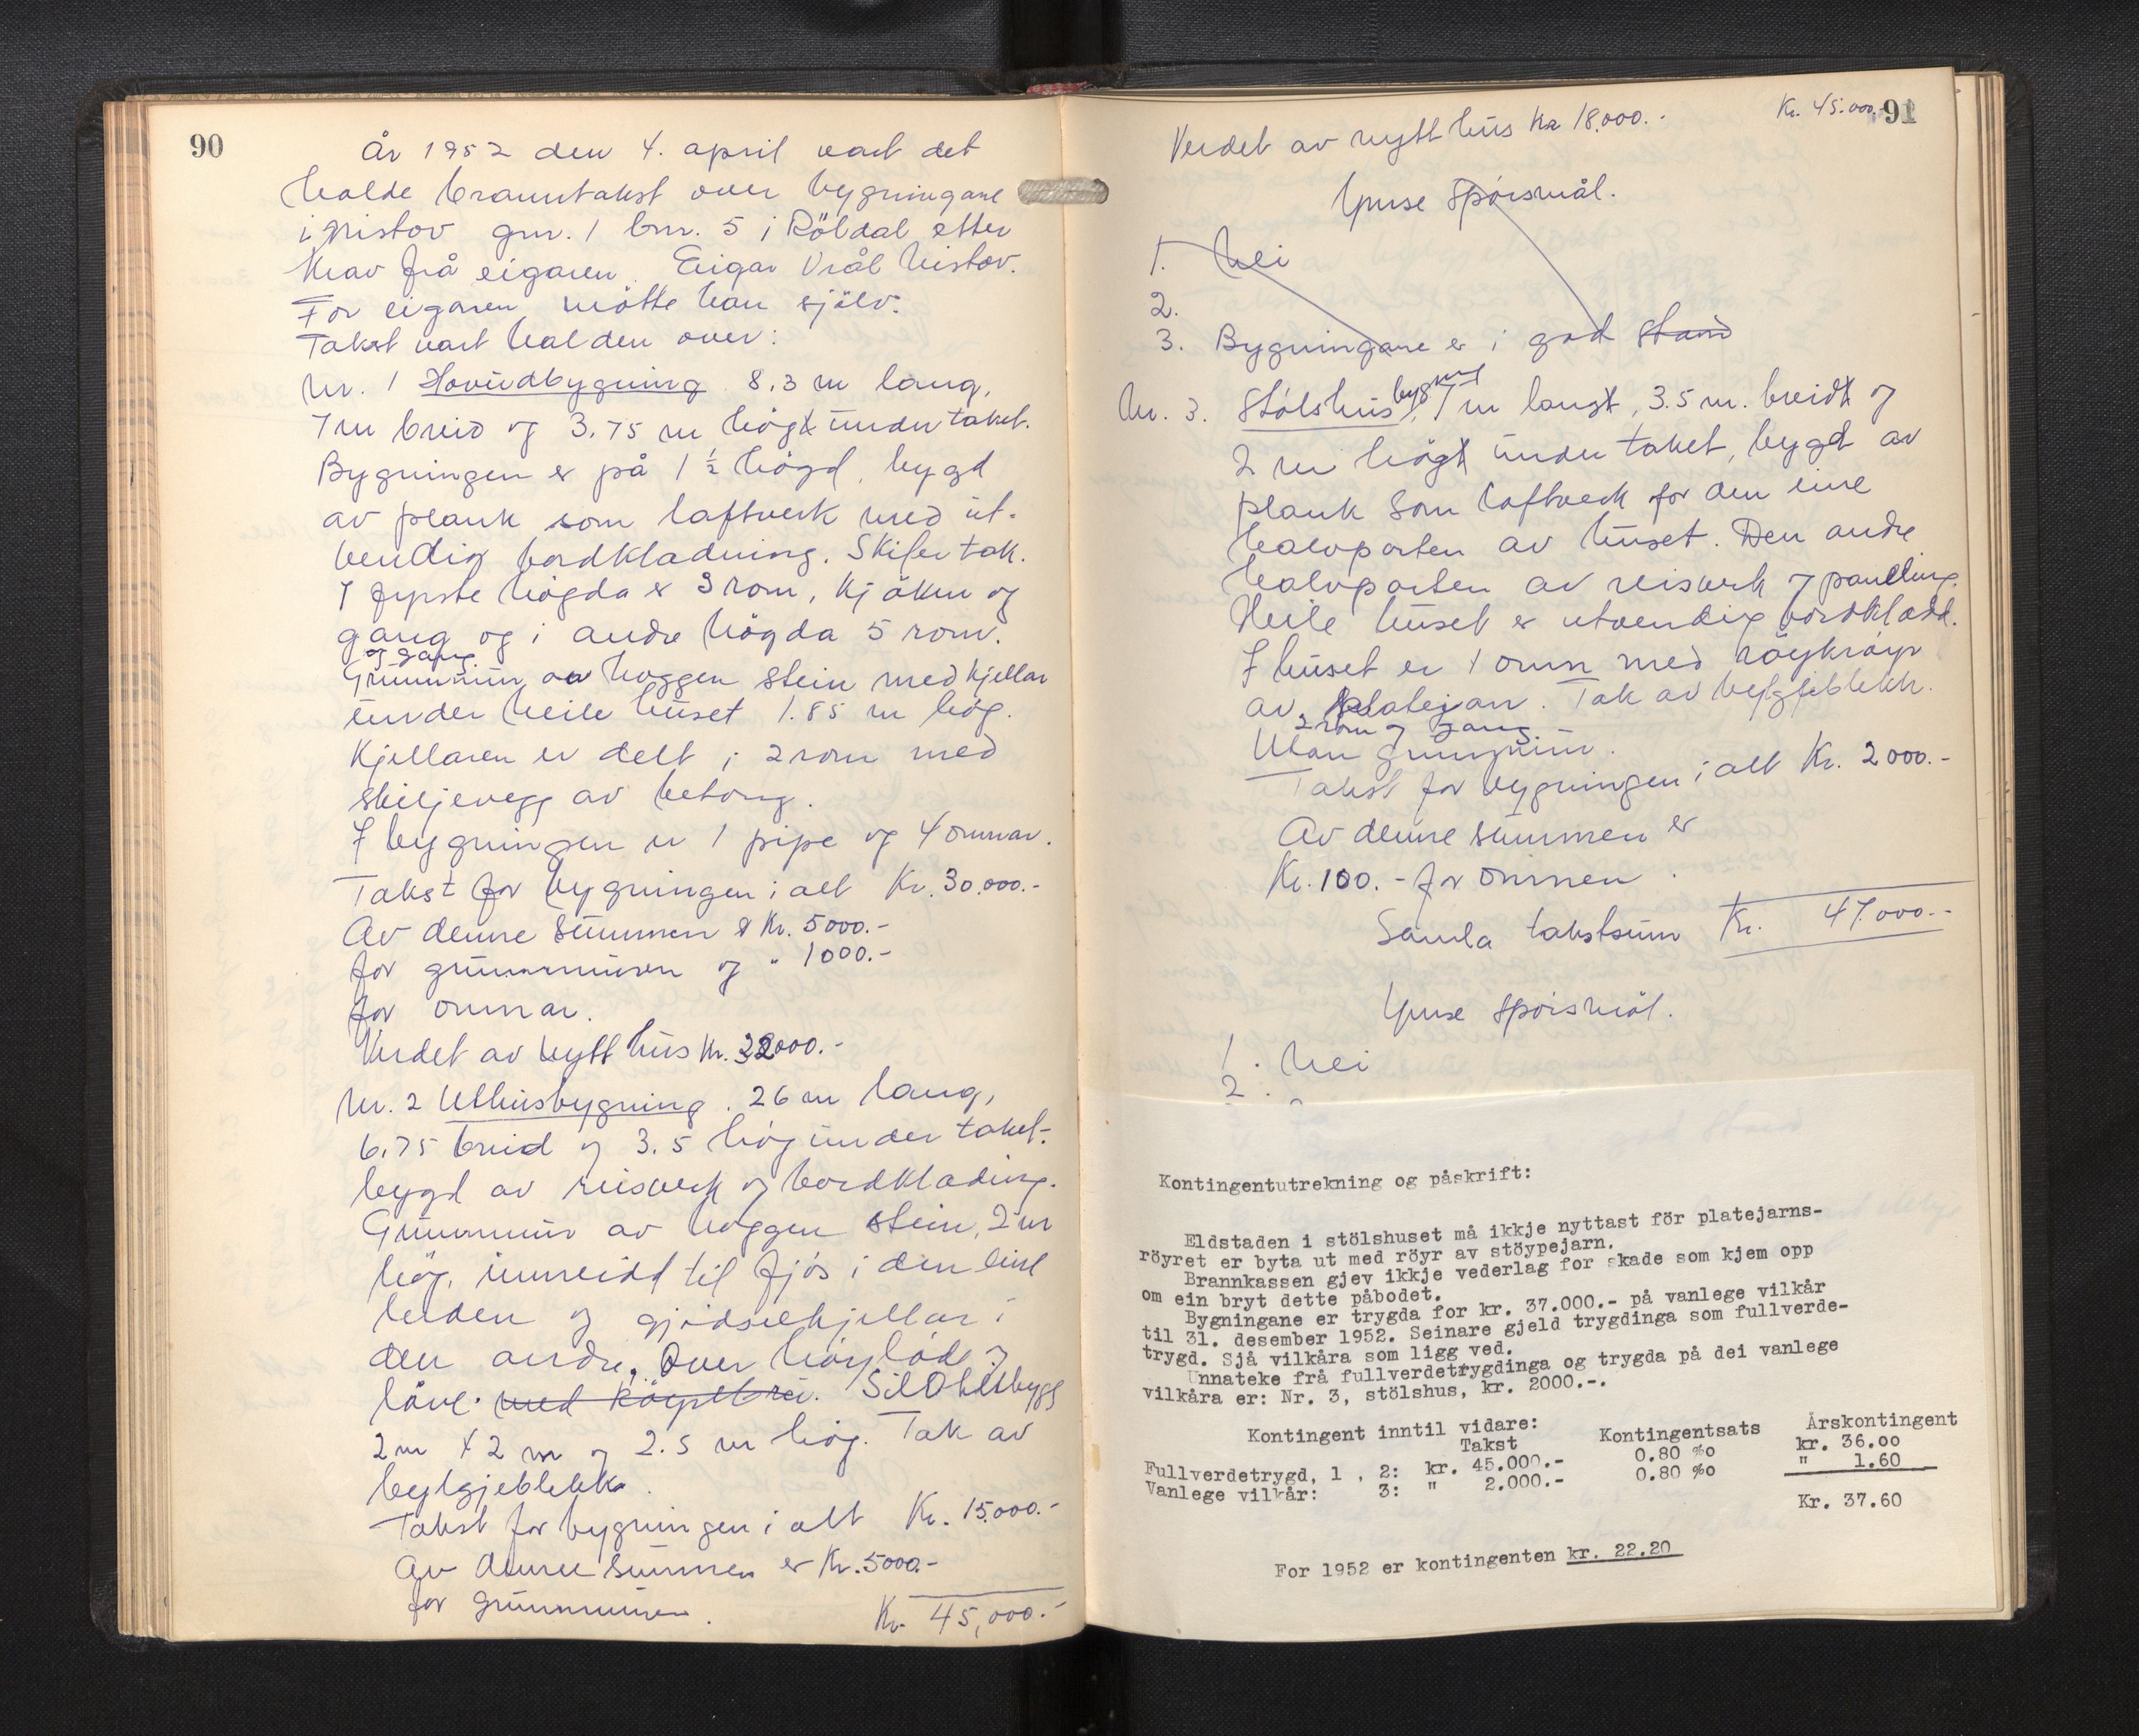 90
År 1952 den 4. april vart det
halde branntakst over bygningane
i Nistov gnr. 1 bnr. 5 i Röldal etter
krav frå eigaren. Eigar Vrål Nistov.
For eigaren mötte han sjölv.
Takst vart halden over:
Nr. 1 Hovudbygning 8.3 m lang,
7 m breid og 3.75 m högt under taket.
Bygningen er på 1 1/2 högd, bygd
av plank som laftverk med ut-
vendig bordkladning. Skifertak.
I fyrste högda er 3 rom, kjöken og
gang og i andre högda 5 rom.
og gang.
Grunnmur av hoggen stein med kjellar
under heile huset 1.85 m hög.
Kjellaren er delt i 2 rom med
skiljevegg av betong.
I bygningen er 1 pipe og 4 omnar.
Takst for bygningen i alt Kr. 30.000.-
Av denne summen er Kr. 5000.-
for grunnmuren og " 1000.-
for omnar.
Verdet av nytt hus Kr. 32000.-
Nr. 2 Uthusbygning. 26 m lang,
6.75 breid og 3.5 hög under taket.
bygd av reisverk og bordklading.
Grunnmur av hoggen stein, 2 m
hög, innreidd til fjös i den eine
enden og gjödselkjellar i
den andre. Over höylöde og
låve. med köyrebru. Silotilbygg
2 m x 2 m og 2.5 m hög. Tak av
bylgjeblekk.
Takst for bygningen i alt Kr. 15.000.-
Av denne summen er Kr. 5000.-
for grunnmuren.
Kr. 45,000.-
Kr. 45.000.-
91
Verdet av nytt hus Kr 18.000.-
Ymse spörsmål.
1. Nei
2.
3. Bygningane er i god stand
Nr. 3. Stölshusbygning, 7 m langt, 3.5 m. breidt og
2 m högt under taket, bygd av
plank som laftverk for den eine
halvparten av huset. Den andre
halvparten av reisverk og panelling.
Heile huset er utvendig bordkledd.
I huset er 1 omn med röykröyr
av platejarn. Tak av bylgjeblekk.
2 rom og gang
Utan grunnmur.
Takst for bygningen i alt Kr. 2000.-
Av denne summen er
Kr. 100.- for omnen.
Samla takstsum Kr. 47.000.-
Ymse spörsmål.
1. Nei
2.
Kontingentutrekning og påskrift:
Eldstaden i stölshuset må ikkje nyttast för platejarns-
röyret er byta ut med röyr av stöypejarn.
Brannkassen gjev ikkje vederlag for skade som kjem opp
om ein bryt dette påbodet.
Bygningane er trygda for kr. 37.000.- på vanlege vilkår
til 31. desember 1952. Seinare gjeld trygdinga som fullverde-
trygd. Sjå vilkåra som ligg ved.
Unnateke frå fullverdetrygdinga og trygda på dei vanlege
vilkåra er: Nr. 3, stölshus, kr. 2000.-.
Kontingent inntil vidare:
Takst Kontingentsats Årskontingent
Fullverdetrygd, 1 , 2: kr. 45.000.- 0.80 %o kr. 36.00
Vanlege vilkår: 3: " 2.000.- 0.80 %o " 1.60
Kr. 37.60
For 1952 er kontingenten kr. 22.20